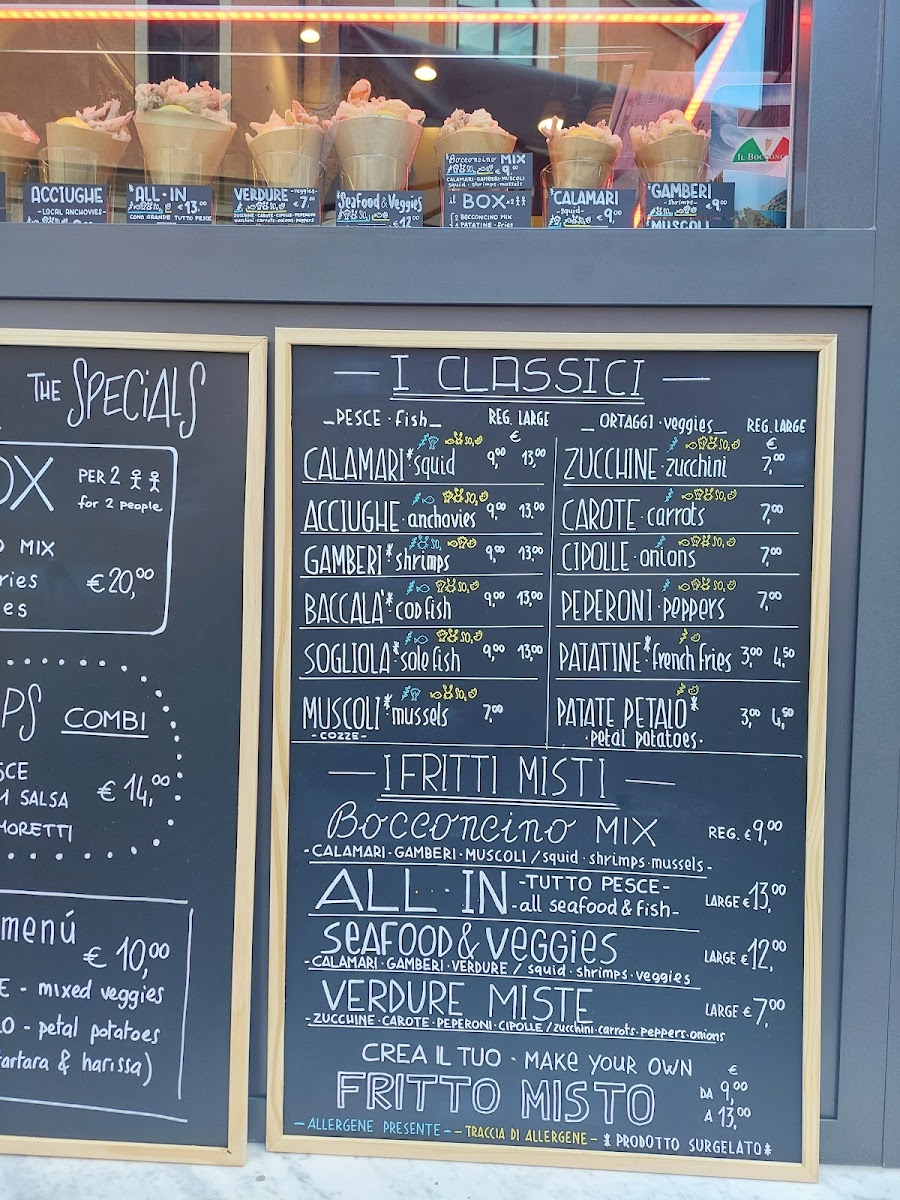 ACCIUGHE
- LOCAL ANCHOVIES -
*ALL-IN
€13,00
CONO GRANDE TUTTO PESCE
VERDURE -veggies-
€7,00
ZUCCHINE·CAROTE·CIPOLLE·PEPERONI
zucchini·carrots·onions·peppers
*Seafood & Veggies
€12
*Bocconcino MIX
€9,00
CALAMARI·GAMBERI·MUSCOLI
squid·shrimps·mussels
il BOX x2
2 BOCCONCINO MIX
1 PATATINE·fries
*CALAMARI
-squid-
€9,00
*GAMBERI
-shrimps-
€9,00
*MUSCOLI
IL BOCCONC
THE SPECIALS
OX
PER 2
for 2 people
O MIX
ries
es
€20,00
PS COMBI
SCE
1 SALSA
MORETTI
€14,00
menú
€10,00
E - mixed veggies
LO - petal potatoes
tartara & harissa)
— I CLASSICI —
_PESCE·fish_ REG. LARGE
€
CALAMARI*squid 9,00 13,00
ACCIUGHE·anchovies 9,00 13,00
GAMBERI*shrimps 9,00 13,00
BACCALA'*codfish 9,00 13,00
SOGLIOLA*sole fish 9,00 13,00
MUSCOLI*mussels 7,00
-COZZE-
_ORTAGGI·veggies_ REG. LARGE
€
ZUCCHINE·zucchini 7,00
CAROTE·carrots 7,00
CIPOLLE·onions 7,00
PEPERONI·peppers 7,00
PATATINE*french fries 3,00 4,50
PATATE PETALO* 3,00 4,50
·petal potatoes·
— I FRITTI MISTI —
Bocconcino MIX REG. €9,00
-CALAMARI·GAMBERI·MUSCOLI / squid·shrimps·mussels-
ALL··IN -TUTTO PESCE- LARGE €13,00
-all seafood & fish-
SEAFOOD & VEGGIES LARGE €12,00
-CALAMARI·GAMBERI·VERDURE / squid·shrimps·veggies
VERDURE MISTE LARGE €7,00
-ZUCCHINE·CAROTE·PEPERONI·CIPOLLE / zucchini·carrots·peppers·onions
CREA IL TUO - MAKE YOUR OWN €
FRITTO MISTO DA 9,00
A 13,00
-ALLERGENE PRESENTE- -TRACCIA DI ALLERGENE- *PRODOTTO SURGELATO*